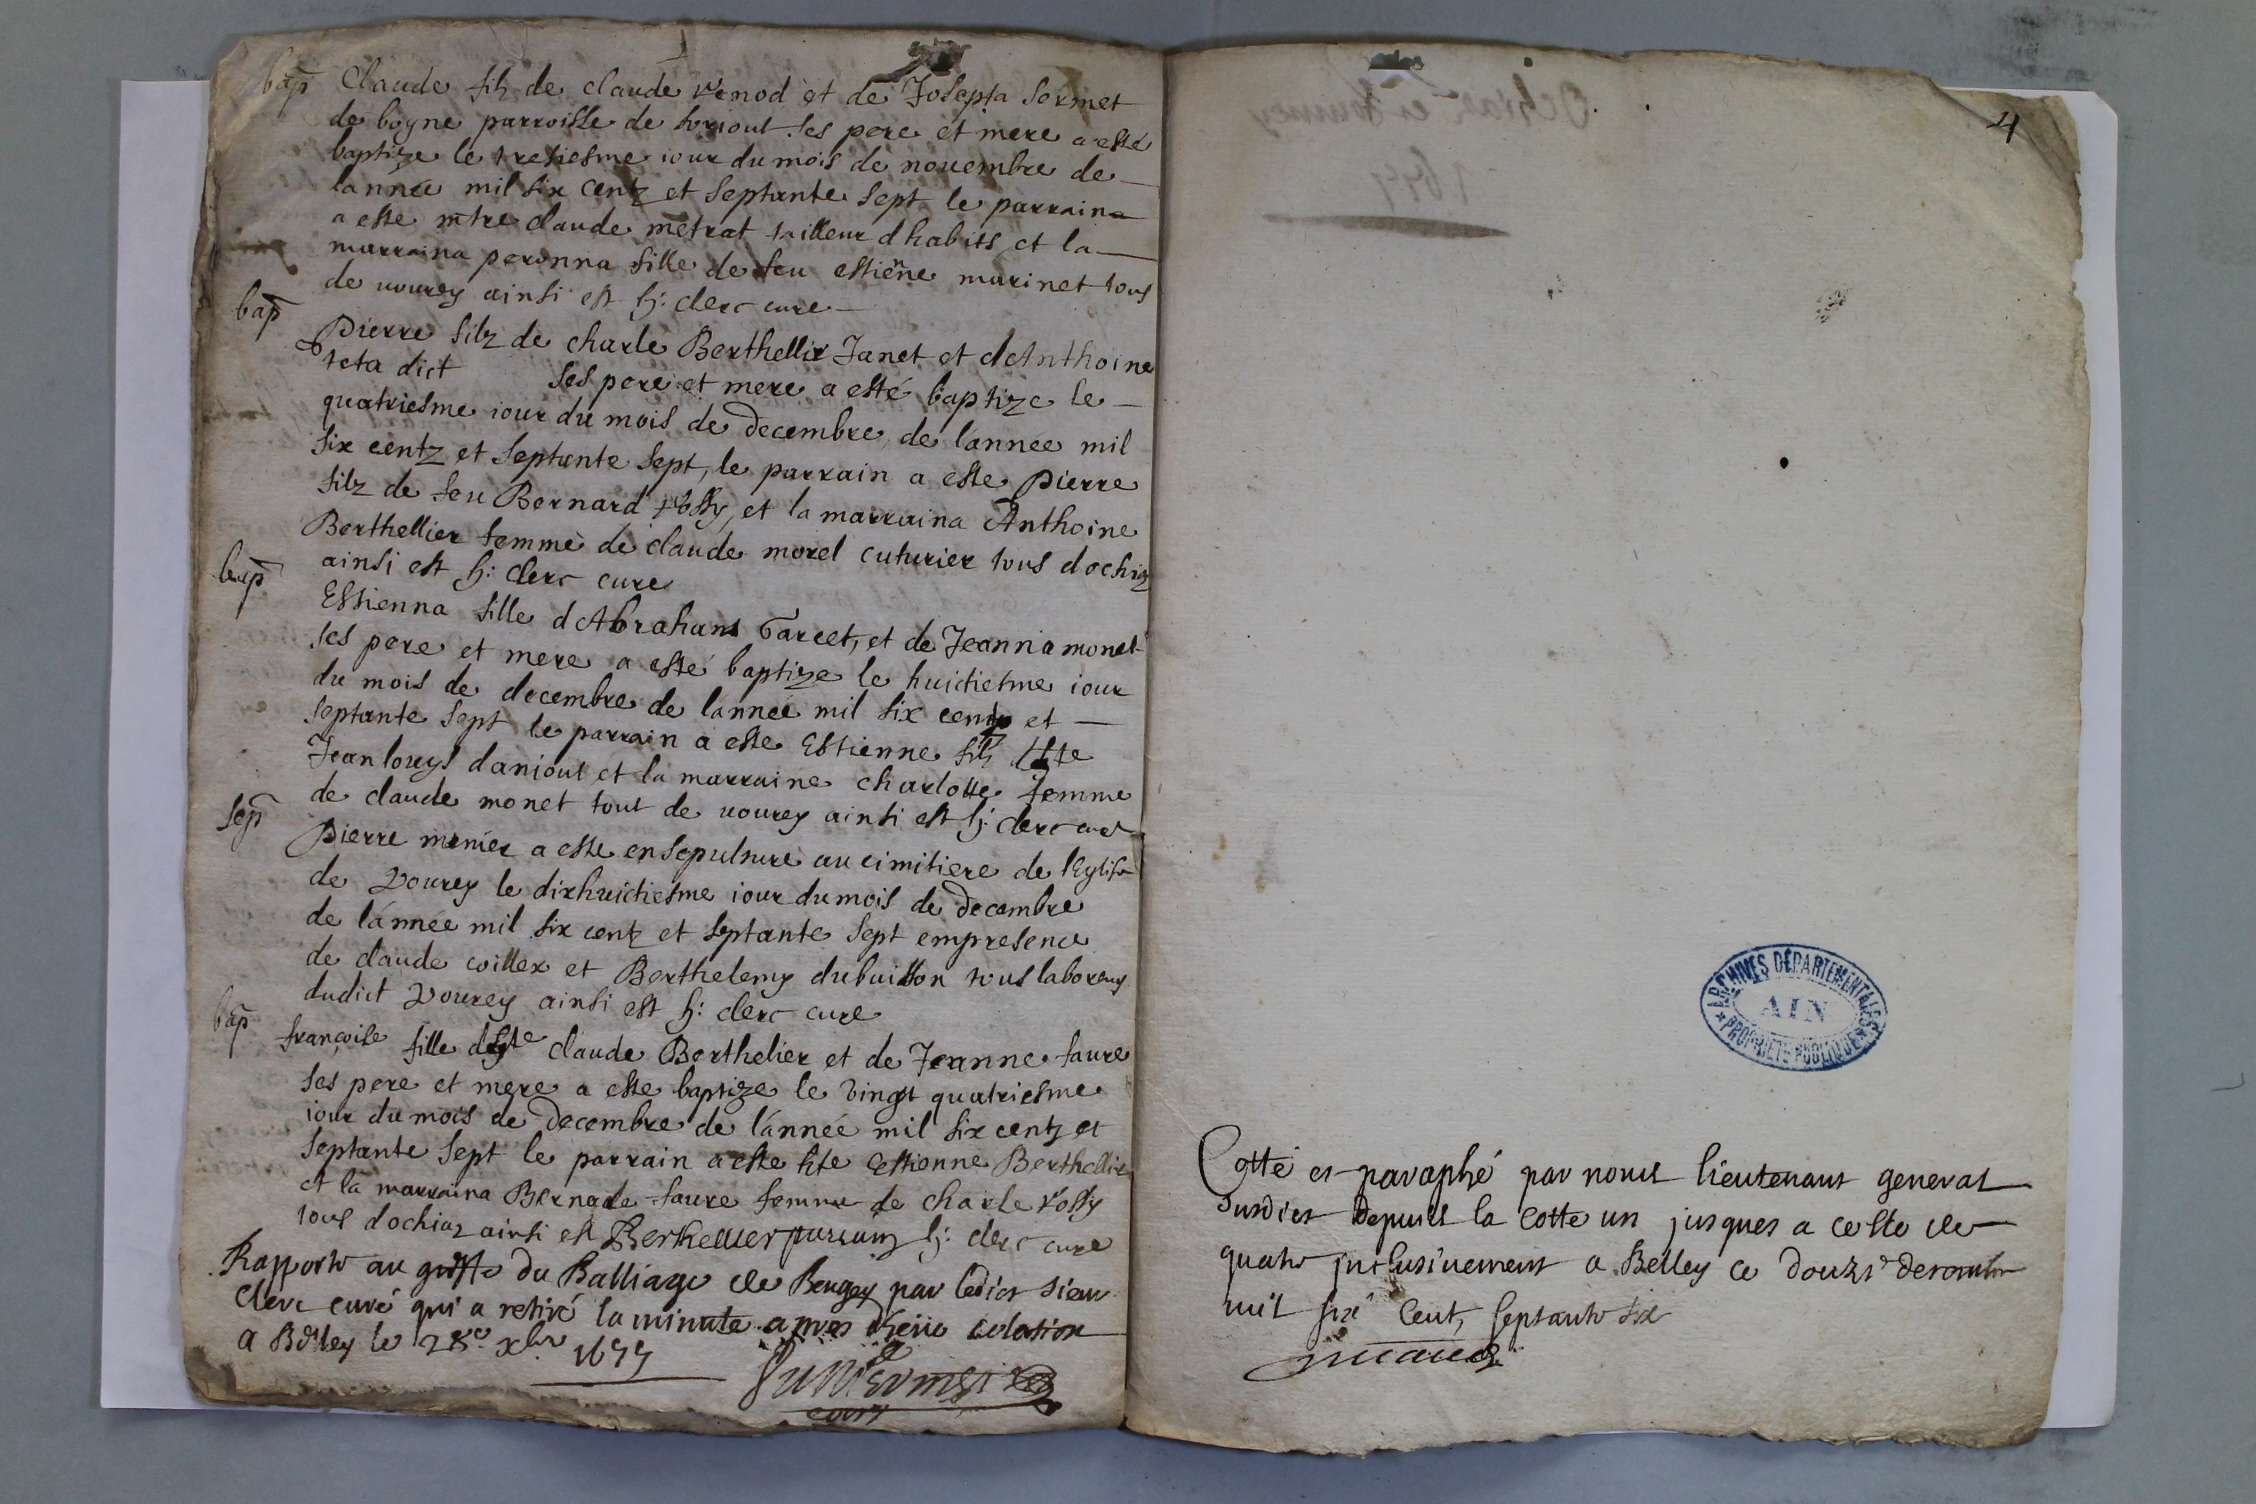 bap Claude filz de claude Venod et de Josepta Sermet
de bogne parroisse de soriout ses pere et mere a esté
baptize le tresiesme iour du mois de nouembre de
lannee mil six centz et septante sept le parrain
a este mtre claude metrat tailleur dhabits et la
marraina peronna fille de feu estiene marinet tous
de uourey ainsi est clerc cure
bap Pierre filz de charle Berthellier Janet et dAnthoine
teta dict ses pere et mere a esté baptize le
quatriesme iour du mois de Decembre de lannee mil
six centz et septante sept, le parrain a este pierre
filz de feu Bernard rossy, et la marraina Anthoine
Berthellier femme de claude morel cuturier tous dochiaz
ainsi est clerc cure
bap Estienna fille dAbraham Tarcet, et de Jeanna monet
ses pere et mere a esté baptize le huictiesme iour
du mois de decembre de lannee mil six centz et
septante sept le parrain a este Estienne filz
Jean louys daniout et la marraine charlotte femme
de claude monet tout de uourey ainsi est clerc cure
sep Pierre menier a este ensepulture au cimitiere de lEglise
de Vourey le dixhuictiesme iour du mois de decembre
de lánnée mil six centz et septante sept empresence
de claude coillex et Berthelemy dubuisson tous laboreurs
dudict Vourey ainsi est clerc cure
bap françoise fille claude Berthelier et de Jeanne faure
ses pere et mere a este baptize le Vingt quatriesme
iour du mois de Decembre de lánnée mil six centz et
septante sept le parrain a este hte Estienne Berthellier
et la marraina Bernade faure femme de charle rossy
tous dochiaz ainsi est Berthellier parrain clerc cure
Rapporte au greffe du Balliage de Beugey par ledict sieur
Clerc curé qui a retiré la minute apres colation
a Belley le 28e xbre 1677
4
ARCHIVES DÉPARTEMENTALES
AIN
PROPRIÉTÉ PUBLIQUE
Cotté et paraphé par nous lieutenant general
susdict depuis la cotte un jusques a celle de
quatre inclusiuement a Belley ce douze decembre
mil six cent, septante six